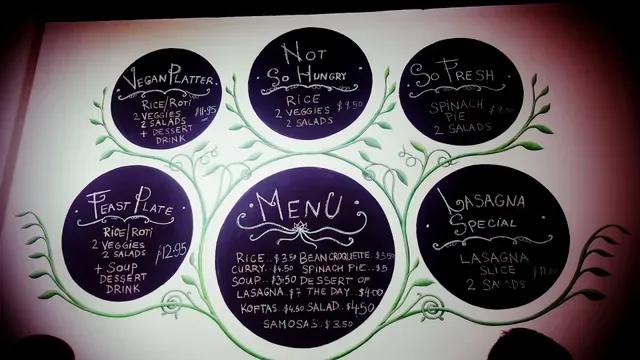 Vegan Platter
Rice/Roti
2 Veggies $11.95
2 Salads
+ Dessert
Drink
Not
So Hungry
Rice
2 Veggies $9.50
2 Salads
So Fresh
Spinach
Pie
2 Salads
Feast Plate
Rice/Roti
2 Veggies
2 Salads $12.95
+ Soup
Dessert
Drink
Menu
Rice.. $3.50 Bean Croquette. $3.50
Curry.. $4.50 Spinach Pie.. $5
Soup.. $3.50 Dessert of
Lasagna. $7 The Day.. $4.00
Koftas. $4.50 Salad.. $4.50
Samosas. $3.50
Lasagna
Special
Lasagna
Slice
2 Salads